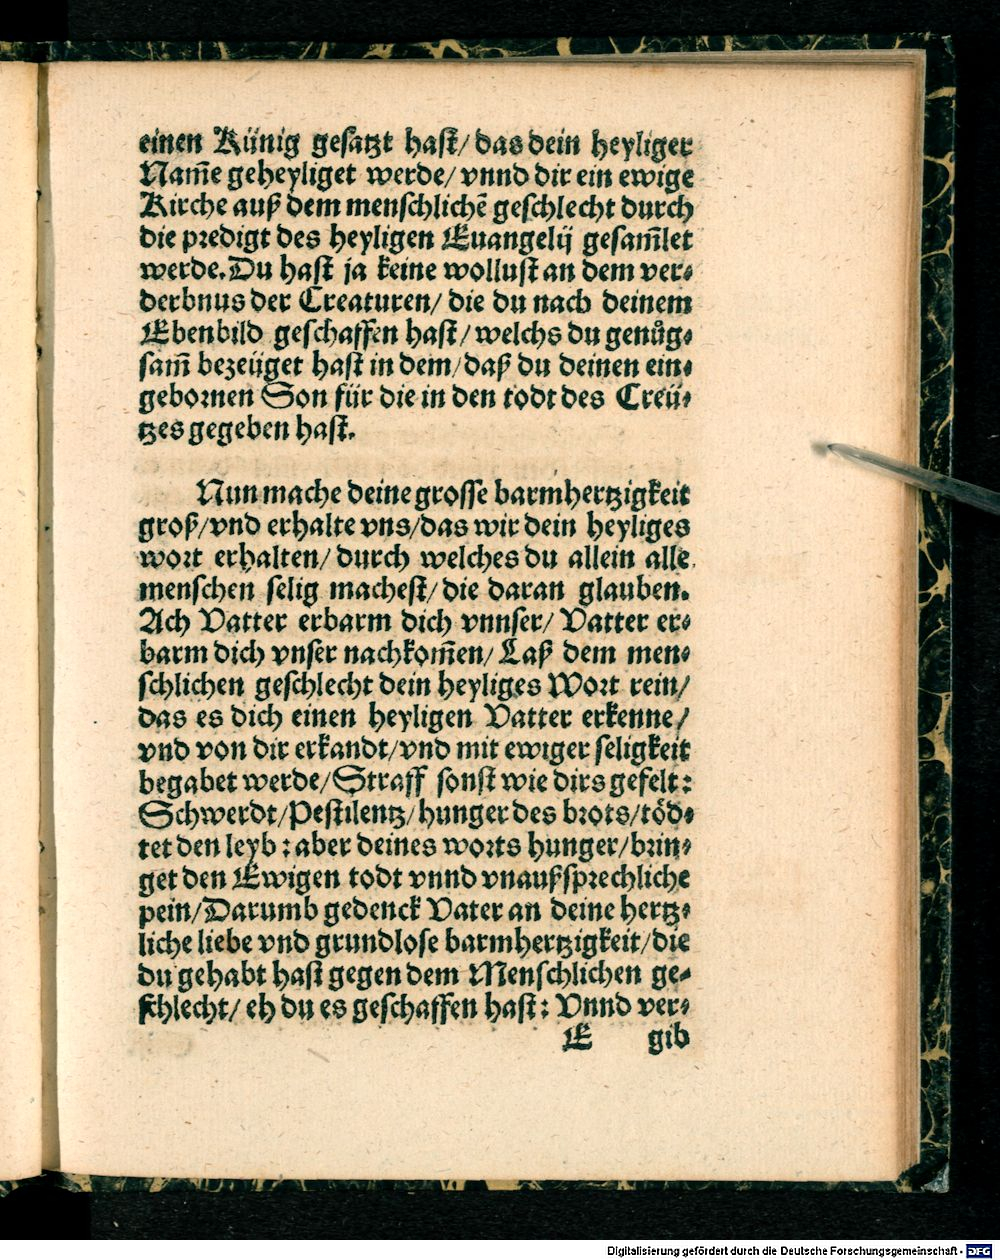 einen Künig gesatzt hast/ das dein heyliger
Nam̃e geheyliget werde/ vnnd dir ein ewige
Kirche auß dem menschlichẽ geschlecht durch
die predigt des heyligen Euangelij gesam̃let
werde. Du hast ja keine wollust an dem ver⸗
derbnus der Creaturen/ die du nach deinem
Ebenbild geschaffen hast/ welchs du genůg⸗
sam̃ bezeüget hast in dem/ daß du deinen ein⸗
gebornen Son für die in den todt des Creü⸗
tzes gegeben hast.
Nun mache deine grosse barmhertzigkeit
groß/ vnd erhalte vns/ das wir dein heyliges
wort erhalten/ durch welches du allein alle
menschen selig machest/ die daran glauben.
Ach Vatter erbarm dich vnnser/ Vatter er⸗
barm dich vnser nachkom̃en/ Laß dem men⸗
schlichen geschlecht dein heyliges Wort rein/
das es dich einen heyligen Vatter erkenne/
vnd von dir erkandt/ vnd mit ewiger seligkeit
begabet werde/ Straff sonst wie dirs gefelt:
Schwerdt/ Pestilentz/ hunger des brots/ töd⸗
tet den leyb: aber deines worts hunger/ brin⸗
get den Ewigen todt vnnd vnaußsprechliche
pein/ Darumb gedenck Vater an deine hertz⸗
liche liebe vnd grundlose barmhertzigkeit/ die
du gehabt hast gegen dem Menschlichen ge⸗
schlecht/ eh du es geschaffen hast: Vnnd ver⸗
E gib
Digitalisierung gefördert durch die Deutsche Forschungsgemeinschaft - DFG